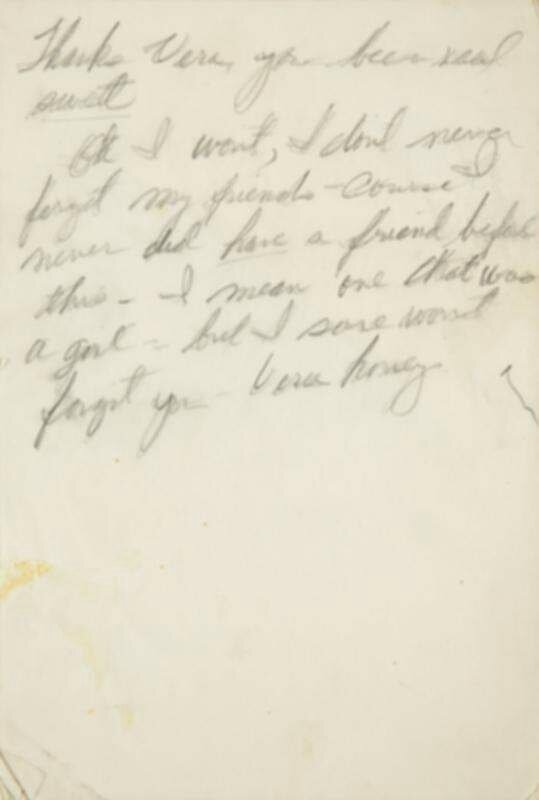 Thanks Vera, you been real
swett
Oh I wont, I dont never
forget my friends - course I
never did have a friend before
this - I mean one that was
a girl - but I sure wont
forget you - Vera honey